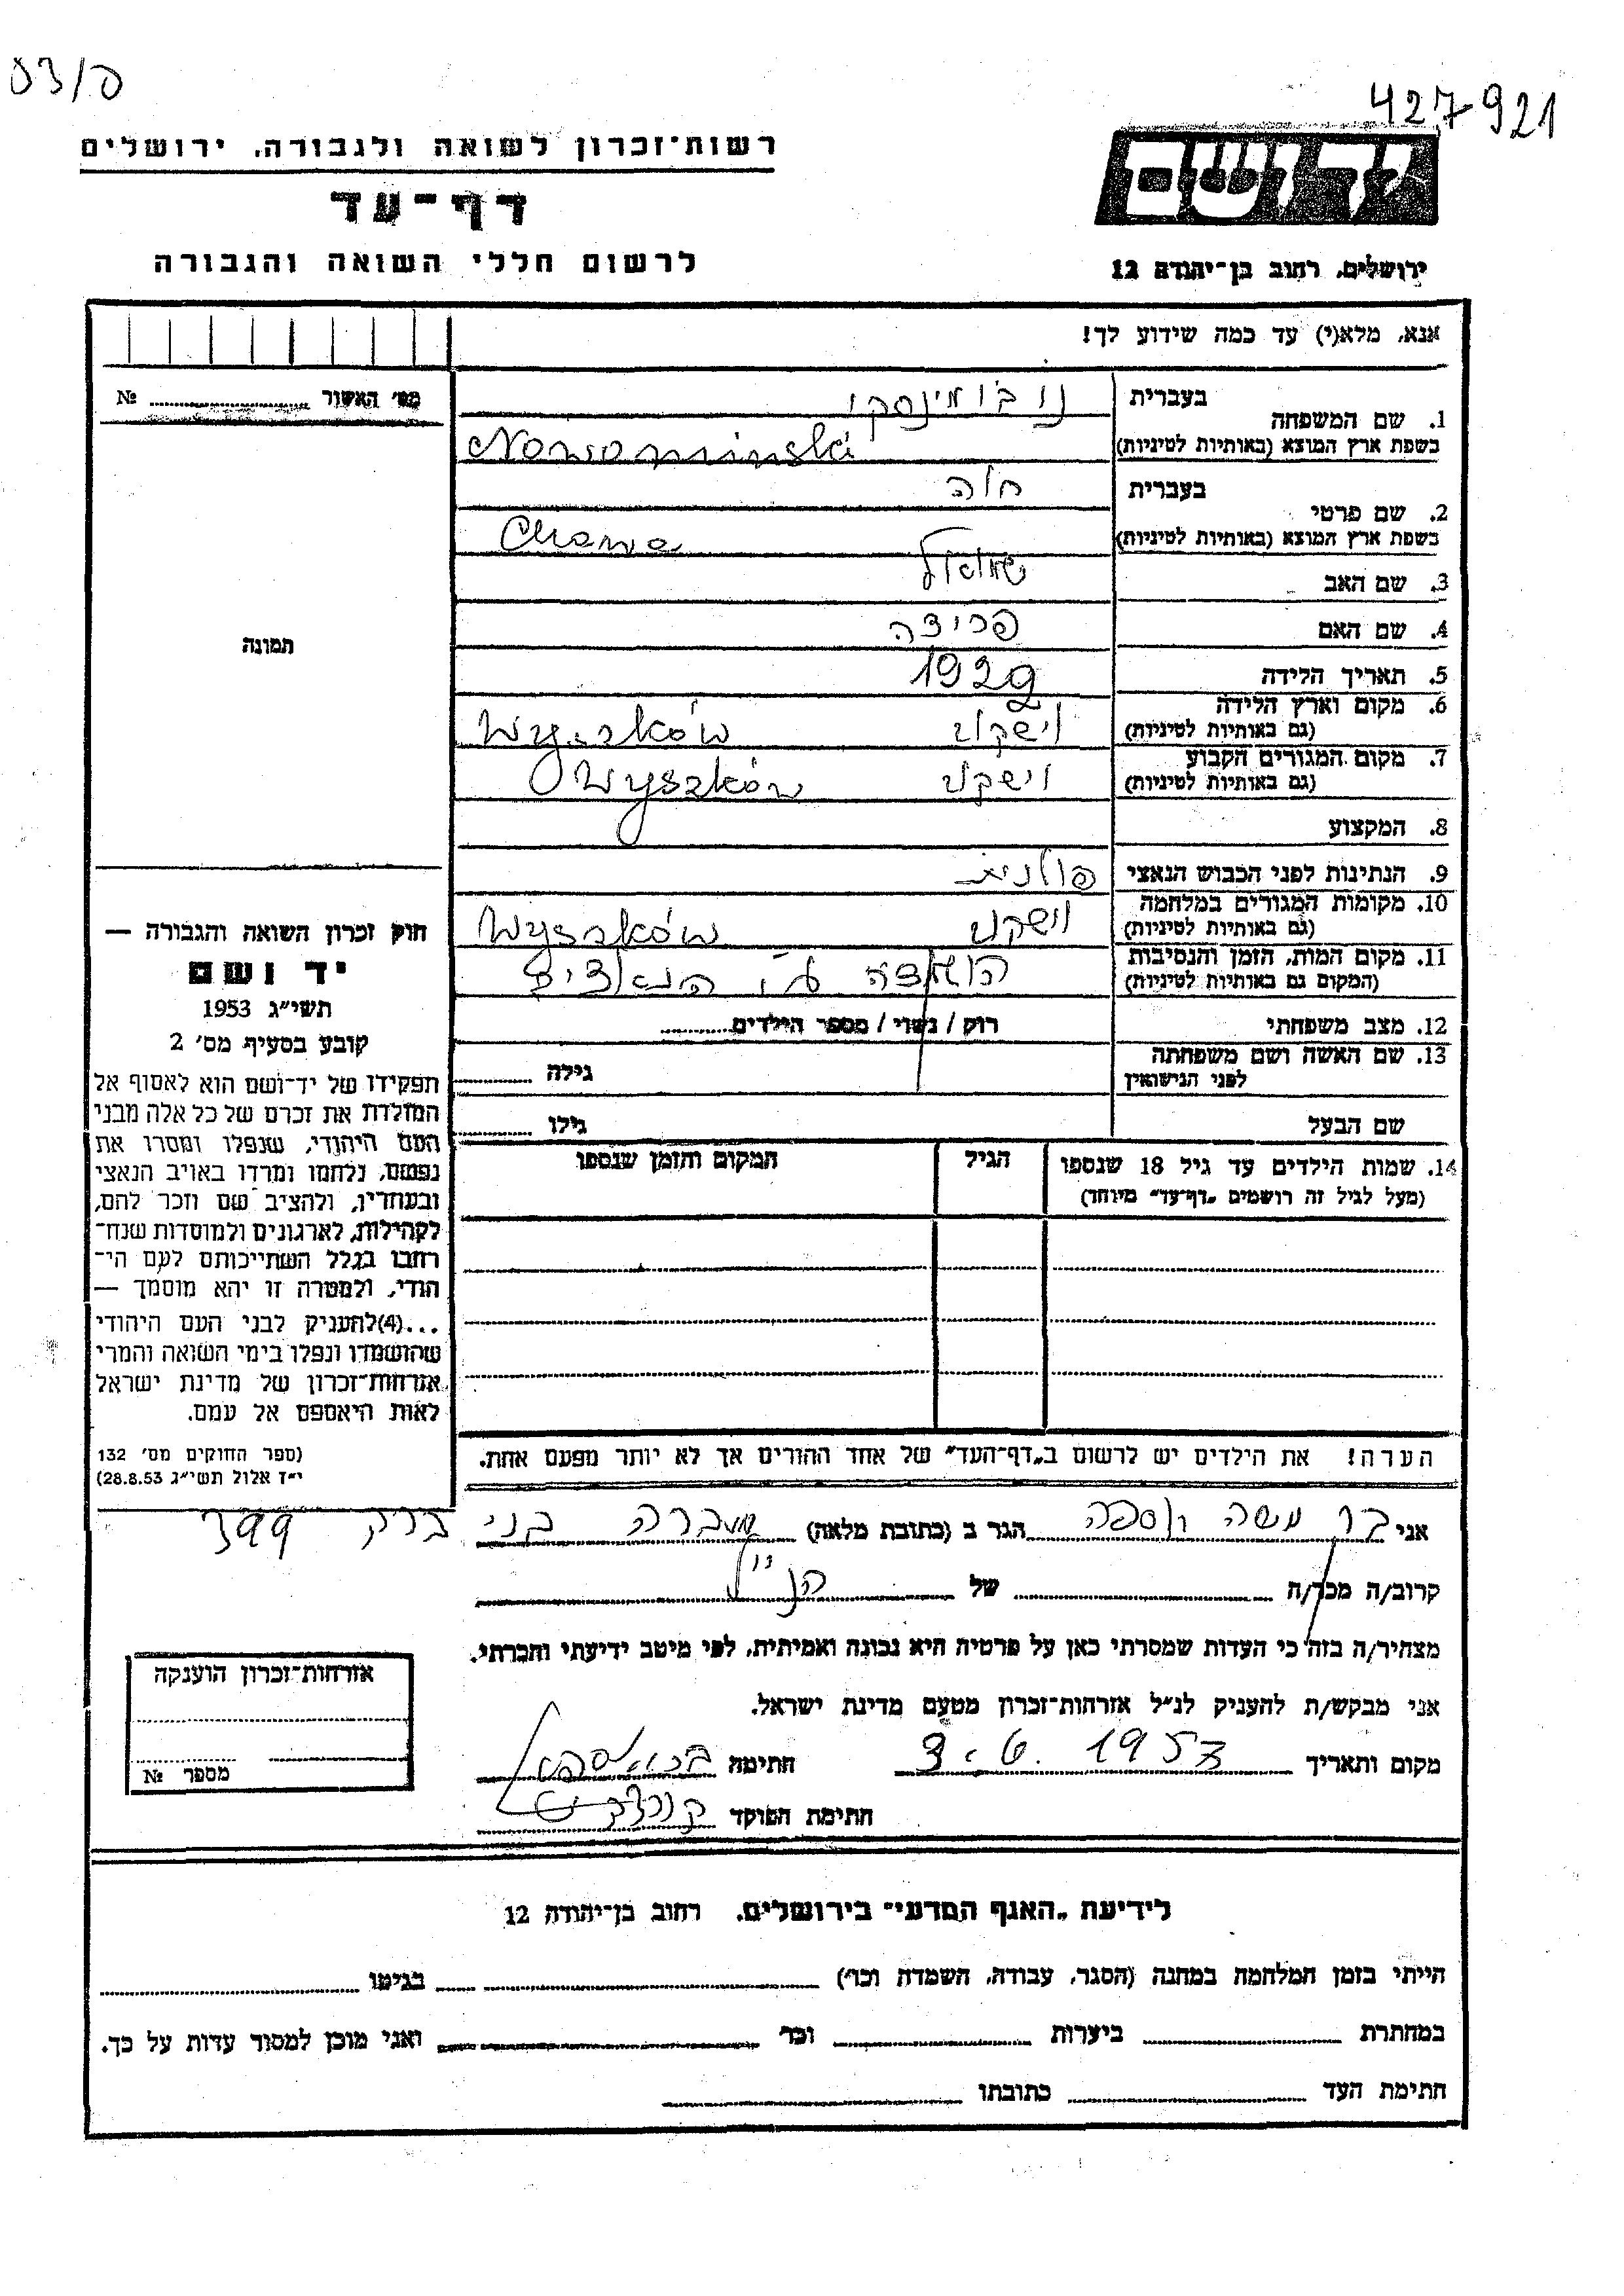 03/ס
427921
רשות־זכרון לשואה ולגבורה, ירושלים
דף־עד
לרשום חללי השואה והגבורה
יד ושם
ירושלים, רחוב בן־יהודה 12
אנא, מלא(י) עד כמה שידוע לך!
מס׳ האשור № 
תמונה
1. שם המשפחה
בעברית נובומינסקי
בשפת ארץ המוצא (באותיות לטיניות) Nowominski
2. שם פרטי
בעברית חוה
בשפת ארץ המוצא (באותיות לטיניות) Chawa
3. שם האב
4. שם האם
5. תאריך הלידה 1929
6. מקום וארץ הלידה
(גם באותיות לטיניות) וישקוב Wyszków
7. מקום המגורים הקבוע
(גם באותיות לטיניות) וישקוב Wyszków
8. המקצוע
9. הנתינות לפני הכבוש הנאצי פולנית
10. מקומות המגורים במלחמה
(גם באותיות לטיניות) וישקוב Wyszków
11. מקום המות, הזמן והנסיבות
(המקום גם באותיות לטיניות) הושמדה ע״י הנאצים
12. מצב משפחתי רוק / נשוי / מספר הילדים
13. שם האשה ושם משפחתה
לפני הנישואין גילה
שם הבעל גילו
14. שמות הילדים עד גיל 18 שנספו
(מעל לגיל זה רושמים „דף־עד״ מיוחד)
הגיל
המקום והזמן שנספו
הערה! את הילדים יש לרשום ב„דף־העד״ של אחד ההורים אך לא יותר מפעם אחת.
חוק זכרון השואה והגבורה —
יד ושם
תשי״ג 1953
קובע בסעיף מס׳ 2
תפקידו של יד־ושם הוא לאסוף אל
המולדת את זכרם של כל אלה מבני
העם היהודי, שנפלו ומסרו את
נפשם, נלחמו ומרדו באויב הנאצי
ובעוזריו, ולהציב שם וזכר להם,
לקהילות, לארגונים ולמוסדות שנח־
רחבו בגלל השתייכותם לעם הי־
הודי, ולמטרה זו יהא מוסמך —
...(4)להעניק לבני העם היהודי
שהושמדו ונפלו בימי השואה והמרי
אזרחות־זכרון של מדינת ישראל
לאות היאספם אל עמם.
(ספר החוקים מס׳ 132
י״ז אלול תשי״ג 28.8.53)
אני הגר ב (כתובת מלאה) מעברה בני ברק 399
קרוב/ה מכר/ה של הנ״ל
מצהיר/ה בזה כי העדות שמסרתי כאן על פרטיה היא נכונה ואמיתית, לפי מיטב ידיעתי והכרתי.
אני מבקש/ת להעניק לנ״ל אזרחות־זכרון מטעם מדינת ישראל.
מקום ותאריך 3.6.1957 חתימה
חתימת הפוקד
אזרחות־זכרון הוענקה
מספר №
לידיעת „האגף המדעי״ בירושלים, רחוב בן־יהודה 12
הייתי בזמן המלחמה במחנה (הסגר, עבודה, השמדה וכר׳) בגיטו
במחתרת ביערות וכר׳ ואני מוכן למסור עדות על כך.
חתימת העד כתובתו